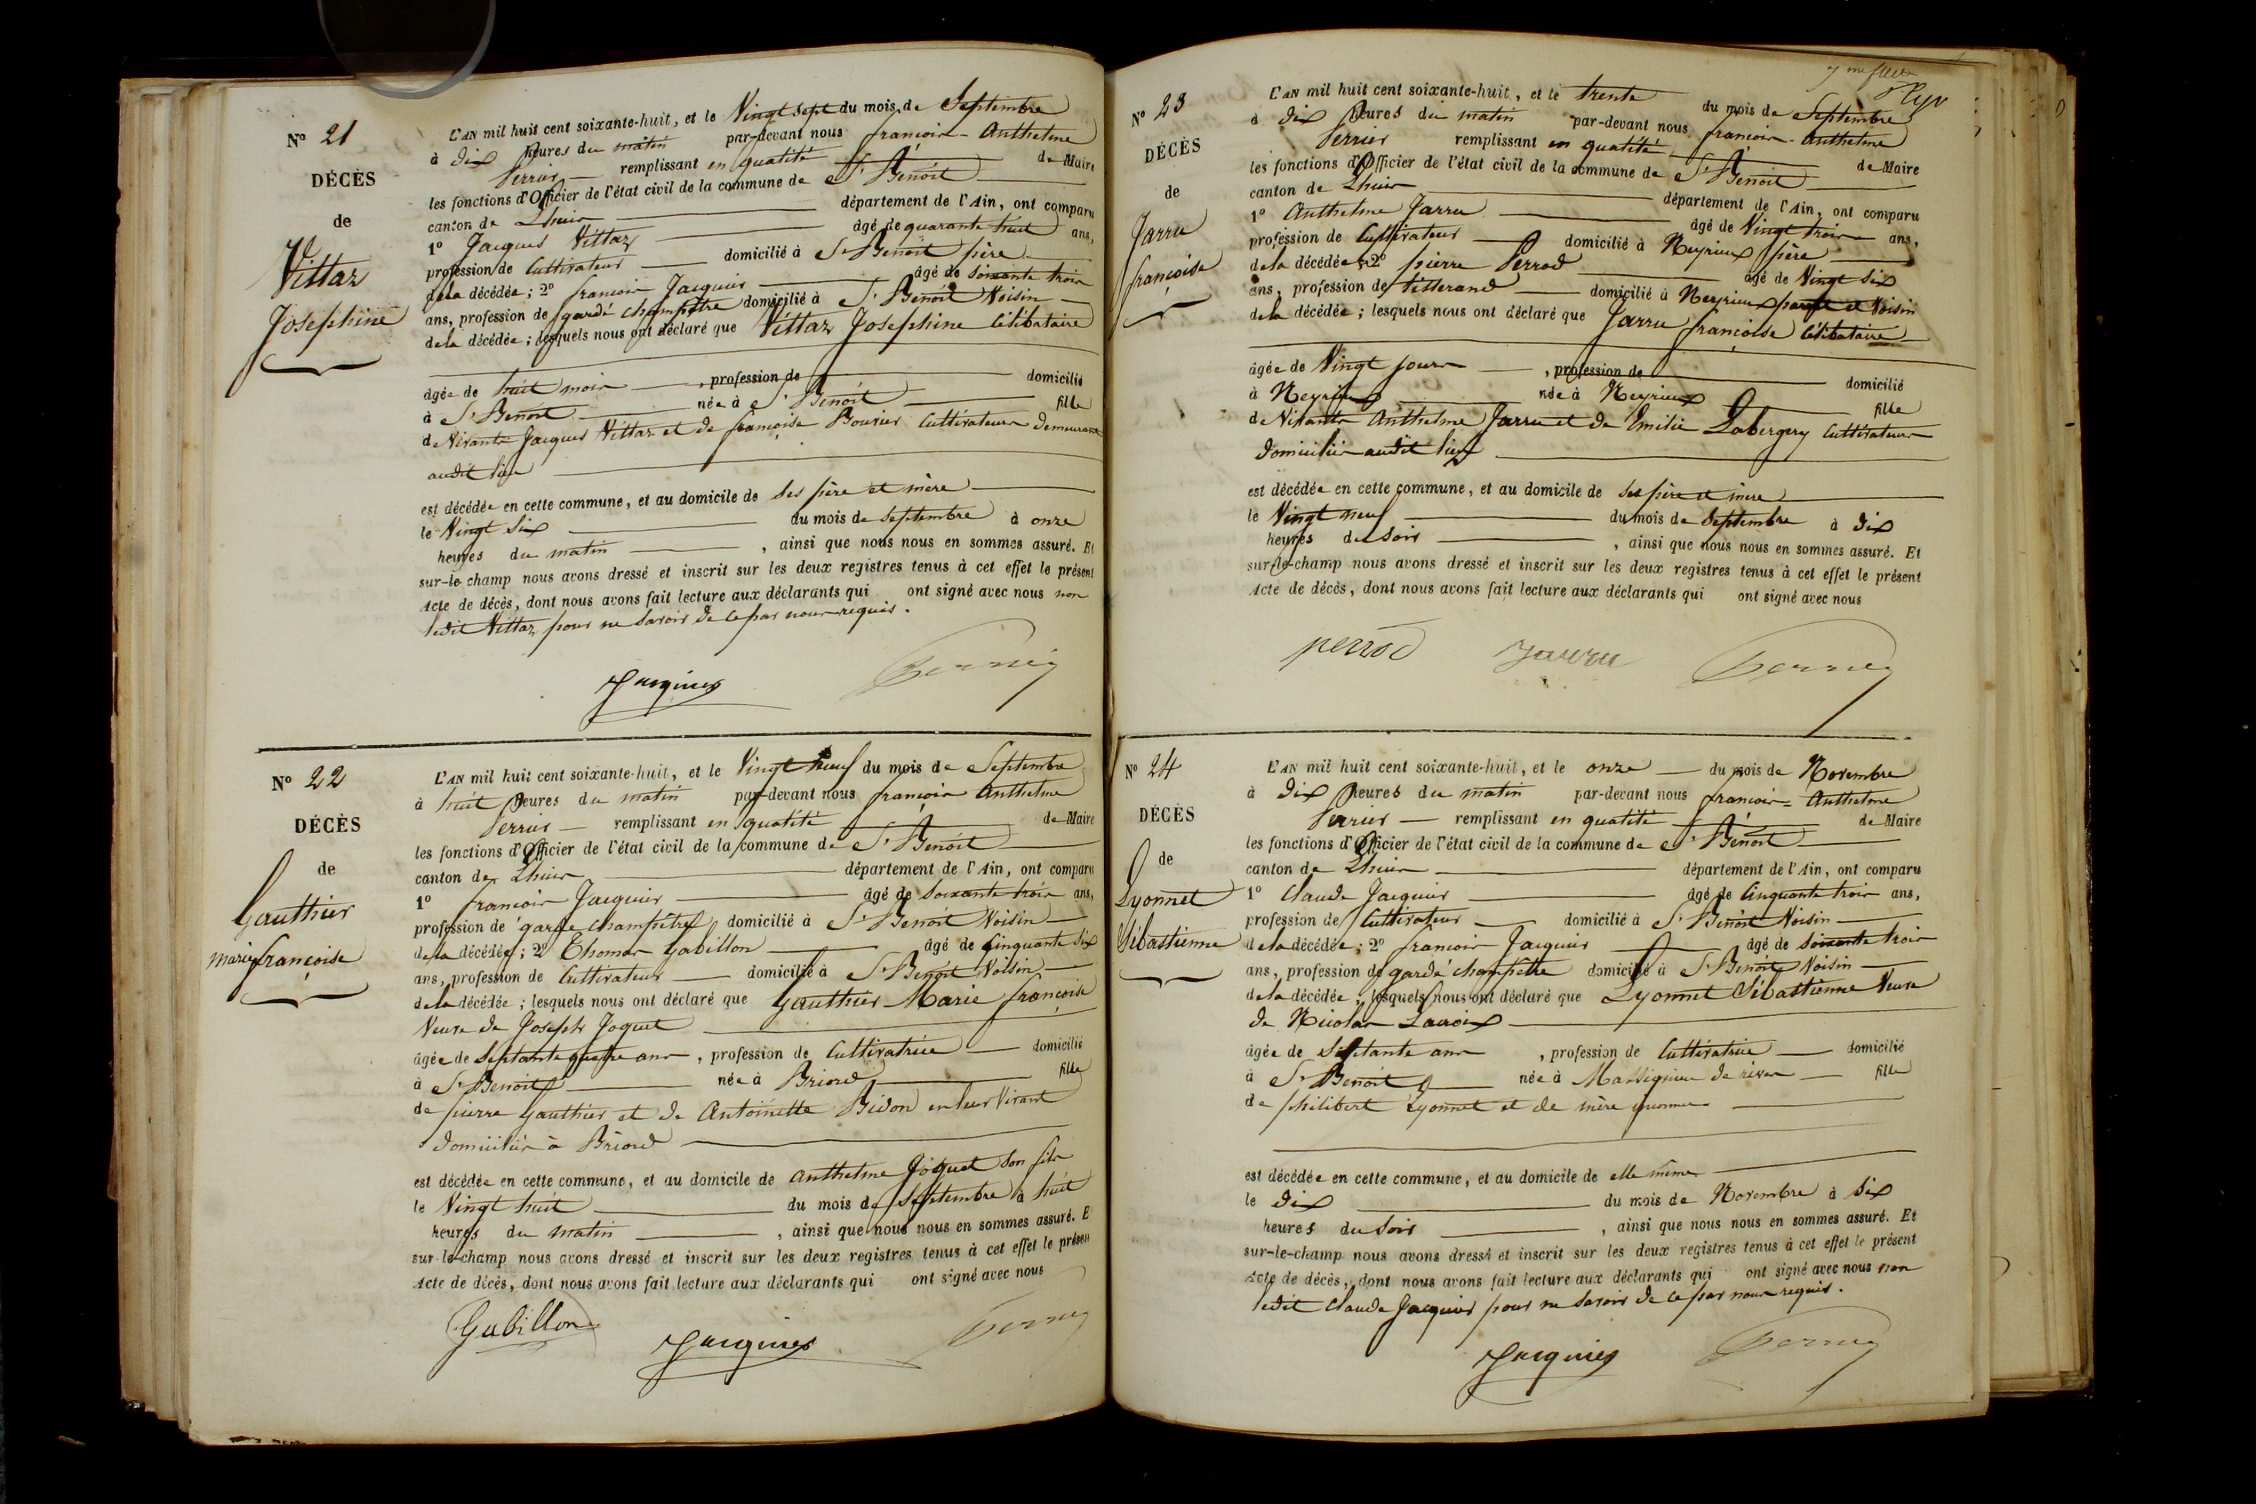 N° 21
DÉCÈS
de
Vittaz
Josephine
L'AN mil huit cent soixante-huit, et le Vingt sept du mois de Septembre
à dix heures du matin par-devant nous françois-Anthelme
Perrier remplissant en qualité de Maire
les fonctions d'Officier de l'état civil de la commune de St Benoit
canton de Lhuis département de l'Ain, ont comparu
1° Jacques Vittaz âgé de quarante huit ans,
profession de Cultivateur domicilié à St Benoit père
de la décédée; 2° françois Jacquier âgé de soixante trois
ans, profession de garde champêtre domicilié à St Benoit Voisin
de la décédée; lesquels nous ont déclaré que Vittaz Josephine Célibataire
âgée de huit mois, profession de domicilié
à St Benoit née à St Benoit fille
de Vivants Jacques Vittaz et de françoise Bouvier Cultivateurs demeurant
audit lieu
est décédée en cette commune, et au domicile de ses père et mère
le Vingt six du mois de Septembre à onze
heures du matin, ainsi que nous nous en sommes assuré. Et
sur-le champ nous avons dressé et inscrit sur les deux registres tenus à cet effet le présent
Acte de décès, dont nous avons fait lecture aux déclarants qui ont signé avec nous non
ledit Vittaz pour ne savoir de ce par nous requis.
Jacquier Perrier
N° 22
DÉCÈS
de
Gauthier
marie françoise
L'AN mil huit cent soixante-huit, et le Vingt neuf du mois de Septembre
à huit heures du matin par-devant nous françois Anthelme
Perrier remplissant en qualité de Maire
les fonctions d'Officier de l'état civil de la commune de St Benoit
canton de Lhuis département de l'Ain, ont comparu
1° françois Jacquier âgé de soixante trois ans,
profession de garde champêtre domicilié à St Benoit Voisin
de la décédée; 2° Thomas Gabillon âgé de Cinquante six
ans, profession de Cultivateur domicilié à St Benoit Voisin
de la décédée; lesquels nous ont déclaré que Gauthier Marie françoise
Veuve de Joseph Joguet
âgée de Septante quatre ans, profession de Cultivatrice domicilié
à St Benoit née à Briord fille
de pierre Gauthier et de Antoinette Bidon en leur Vivant
domiciliés à Briord
est décédée en cette commune, et au domicile de Anthelme Joguet son fils
le Vingt huit du mois de Septembre à huit
heures du matin, ainsi que nous nous en sommes assuré. E
sur-le-champ nous avons dressé et inscrit sur les deux registres tenus à cet effet le présen
Acte de décès, dont nous avons fait lecture aux déclarants qui ont signé avec nous
Gabillon Jacquier Perrier
N° 23
DÉCÈS
de
Jarru
françoise
L'AN mil huit cent soixante-huit, et le trente du mois de Septembre
à dix heures du matin par-devant nous françois-Anthelme
Perrier remplissant en qualité de Maire
les fonctions d'Officier de l'état civil de la commune de St Benoit
canton de Lhuis département de l'Ain, ont comparu
1° Anthelme Jarru âgé de Vingt trois ans,
profession de Cultivateur domicilié à Neyrieux père
de la décédée; 2° pierre Perrod âgé de Vingt six
ans, profession de tisserand domicilié à Neyrieux parent et Voisin
de la décédée; lesquels nous ont déclaré que Jarru françoise Célibataire
âgée de Vingt jours, profession de domicilié
à Neyrieux née à Neyrieux fille
de Vivants Anthelme Jarru et de Emilie Labergery Cultivateurs
domiciliés audit lieu
est décédée en cette commune, et au domicile de ses père et mère
le Vingt neuf du mois de Septembre à dix
heures du soir, ainsi que nous nous en sommes assuré. Et
sur-le-champ nous avons dressé et inscrit sur les deux registres tenus à cet effet le présent
Acte de décès, dont nous avons fait lecture aux déclarants qui ont signé avec nous
perrod Jarru Perrier
N° 24
DÉCÈS
de
Lyonnet
Sébastienne
L'AN mil huit cent soixante-huit, et le onze du mois de Novembre
à dix heures du matin par-devant nous françois-Anthelme
Perrier remplissant en qualité de Maire
les fonctions d'Officier de l'état civil de la commune de St Benoit
canton de Lhuis département de l'Ain, ont comparu
1° Claude Jacquier âgé de Cinquante trois ans,
profession de Cultivateur domicilié à St Benoit Voisin
de la décédée; 2° françois Jacquier âgé de soixante trois
ans, profession de garde champêtre domicilié à St Benoit Voisin
de la décédée; lesquels nous ont déclaré que Lyonnet Sébastienne Veuve
de Nicolas Lacroix
âgée de Septante ans, profession de Cultivatrice domicilié
à St Benoit née à Massignieu de rives fille
de philibert Lyonnet et de mère
est décédée en cette commune, et au domicile de elle même
le dix du mois de Novembre à six
heures du soir, ainsi que nous nous en sommes assuré. Et
sur-le-champ nous avons dressé et inscrit sur les deux registres tenus à cet effet le présent
Acte de décès, dont nous avons fait lecture aux déclarants qui ont signé avec nous non
ledit Claude Jacquier pour ne savoir de ce par nous requis.
Jacquier Perrier